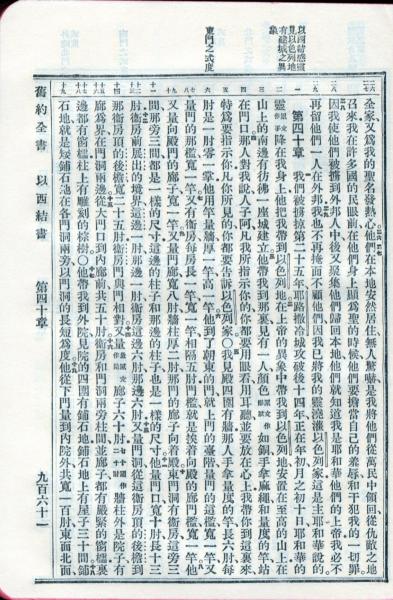 以西結感靈見以色列地有建城之異象
東門之式度
全家、又爲我的聖名發熱心、他們在本地安然居住、無人驚嚇、是我將他們從萬民中領回、從仇敵之地
召來、我在許多國的民眼前、在他們身上顯爲聖的時候、他們要擔當自己的羞辱、和干犯我的一切罪。
因我使他們被擄到外邦人中、後又聚集他們歸回本地、他們就知道我是耶和華他們的上帝、我必不
再留他們一人在外邦、我也不再掩面不顧他們、因我已將我的靈澆灌以色列家、這是主耶和華說的。
第四十章 我們被擄掠第二十五年、耶路撒冷城攻破後十四年、正在年初、月之初十日、耶和華的
靈原文作手降在我身上、他把我帶到以色列地、在上帝的異象中帶我到以色列地、安置在至高的山上、在
山上的南邊有彷彿一座城建立。他帶我到那裏、見有一人、顏色如銅、手拿麻繩和量度的竿、
在門口那人對我說、人子阿、凡我所指示你的、你都要用眼看用耳聽、並要放在心上、我帶你到這裏來、
特爲要指示你、凡你所見的、你都要告訴以色列家。〇我見殿四圍有牆、那人手拿量度的竿、長六肘、每
肘是一肘零一掌、他用竿量牆、厚一竿、高一竿。他到了朝東的門、就上門的臺階、量門的這檻寬一竿、又
量門的那檻寬一竿。又有衞房、每房長一竿、寬一竿、相隔五肘、門檻就是挨着向殿的廊門檻、一竿。他
又量向殿門的廊子、寬一竿。又量門廊、寬八肘、牆柱厚二肘、那門的廊子向着殿。東門洞有衞房、這旁三
間、那旁三間、都是一樣的尺寸、這邊的柱子、和那邊的柱子、也是一樣的尺寸。他量門口寬十肘、長十三
肘。衞房前展出的境界、這邊一肘、那邊一肘、衞房這邊六肘、那邊六肘。又量門洞、從這衞房頂的後檐到
那衞房頂的後檐、寬二十五肘、衞房門與門相對。又量廊子六十肘、牆柱外是院子、有
廊爲界、在門洞兩邊。從大門口到內廊前、共五十肘。衞房和門洞兩旁柱間並廊子、都有嚴緊的窗櫺、裏
邊都有窗櫺、柱上有雕刻的棕樹。〇他帶我到外院、見院的四圍有鋪石地、鋪石地上有屋子三十間。鋪
石地、就是矮鋪石地、在各門洞兩旁、以門洞的長短爲度。他從下門量到內院外、共寬一百肘、東面北面
舊約全書 以西結書 第四十章 九百六十一